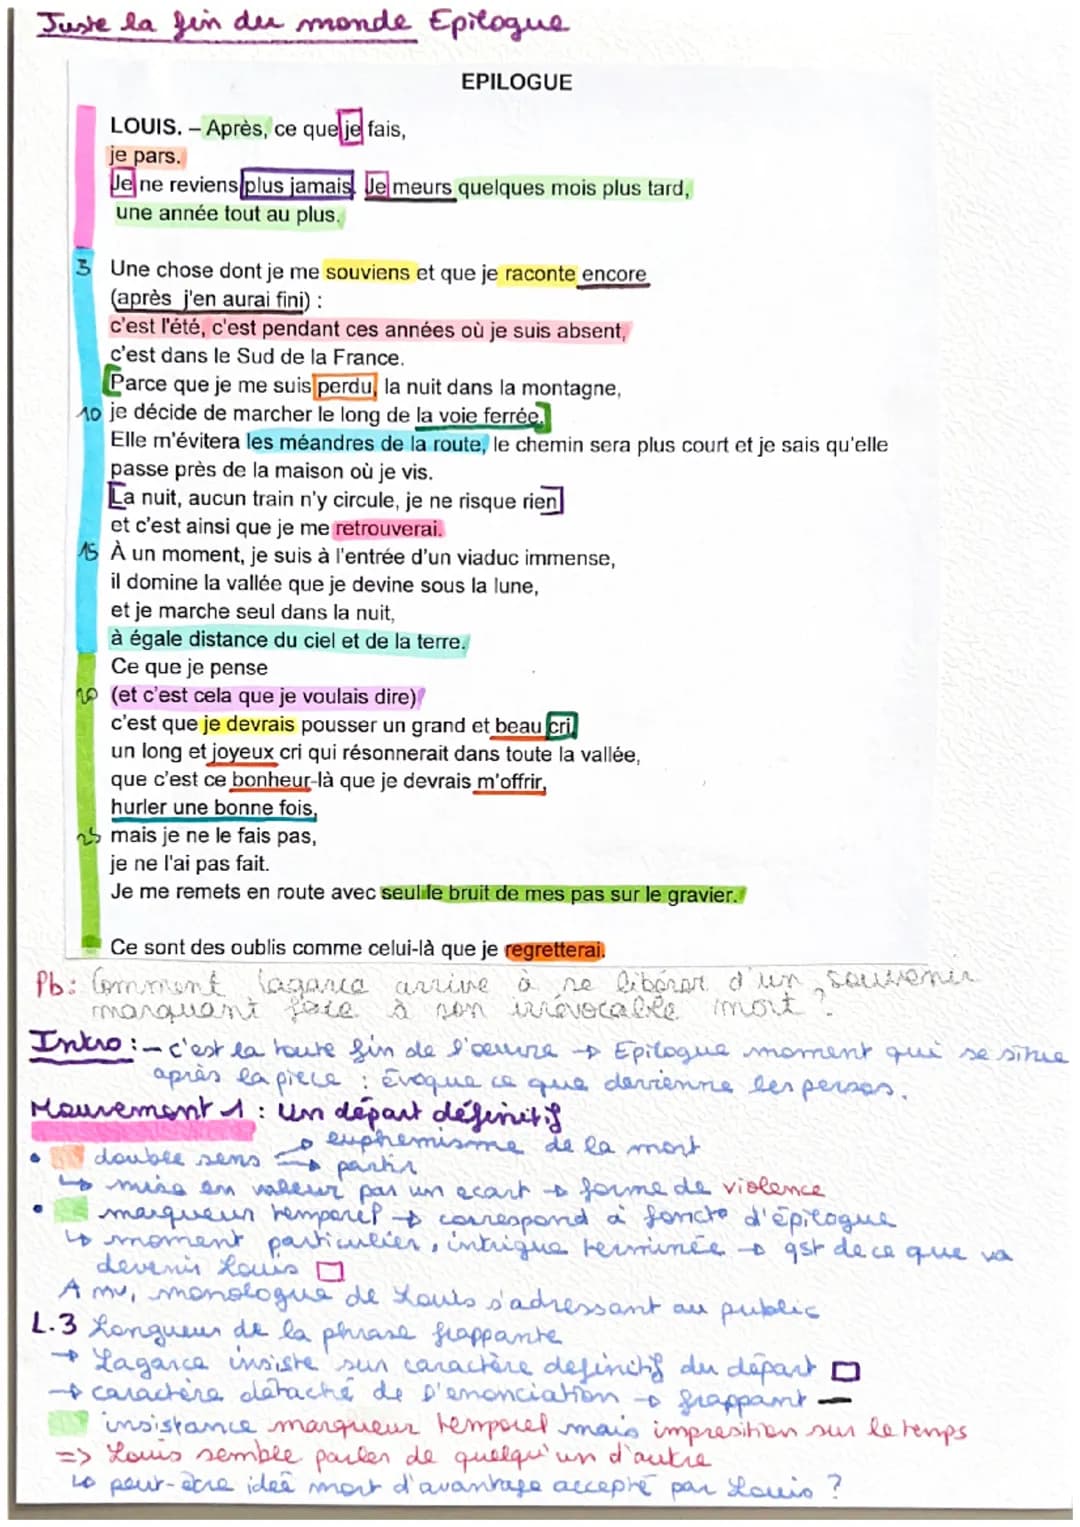 Juste la fin du monde Epilogue
EPILOGUE
LOUIS. – Après, ce que je fais,
je pars.
Je ne reviens plus jamais. Je meurs quelques mois plus tard,
une année tout au plus.
5 Une chose dont je me souviens et que je raconte encore
(après j'en aurai fini) :
c'est l'été, c'est pendant ces années où je suis absent,
c'est dans le Sud de la France.
Parce que je me suis perdu, la nuit dans la montagne,
10 je décide de marcher le long de la voie ferrée.
Elle m'évitera les méandres de la route, le chemin sera plus court et je sais qu'elle
passe près de la maison où je vis.
La nuit, aucun train n'y circule, je ne risque rien
et c'est ainsi que je me retrouverai.
15 À un moment, je suis à l'entrée d'un viaduc immense,
il domine la vallée que je devine sous la lune,
et je marche seul dans la nuit,
à égale distance du ciel et de la terre.
Ce que je pense
20 (et c'est cela que je voulais dire)
c'est que je devrais pousser un grand et beau cri,
un long et joyeux cri qui résonnerait dans toute la vallée,
que c'est ce bonheur-là que je devrais m'offrir,
hurler une bonne fois,
25 mais je ne le fais pas,
je ne l'ai pas fait.
Je me remets en route avec seul le bruit de mes pas sur le gravier.
Ce sont des oublis comme celui-là que je regretterai.
Pb: Comment Lagarce arrive à se libérer d'un souvenir
marquant face à son irrévocable mort ?
Intro : - c'est la toute fin de l'œuvre → Epilogue moment qui se situe
après la pièce : évoque ce que devienne les persos.
Mouvement 1 : Un départ définitif
• double sens → euphemisme de la mort
→ partir
↳ mise en valeur par un ecart → forme de violence
• marqueur temporel → correspond à foncto d'épilogue
↳ moment particulier, intrigue terminée → qst de ce que va
devenir Louis
A mv, monologue de Louis s'adressant au public
L.3 Longueur de la phrase frappante
→ Lagarce insiste sur caractère definitif du départ
→ caractère détaché de l'enonciation → frappant
insistance marqueur temporel mais imprésition sur le temps
=> Louis semble parler de quelqu'un d'autre
↳ peut-être ideé mort d'avantage accepté par Louis ?